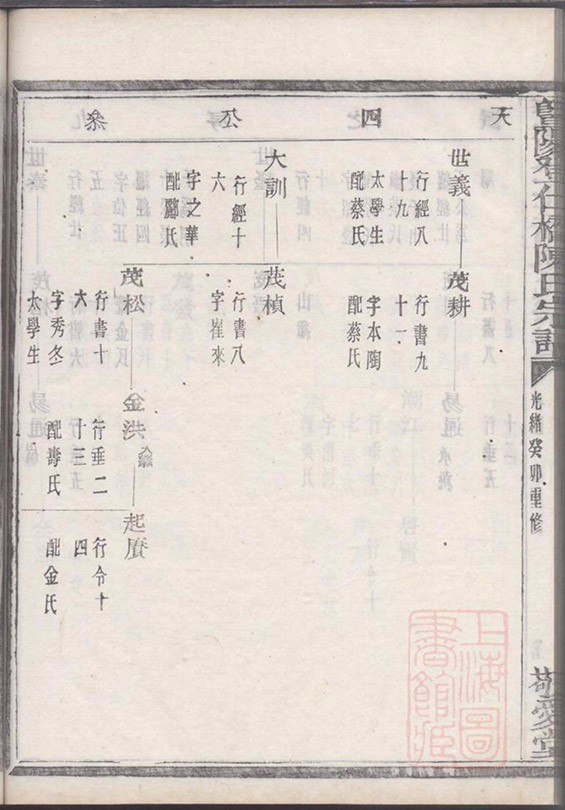 暨陽孝仁橋陳氏宗譜
光緒癸卯重修
敬愛堂
天四公叅
世義
行經八
十九
太學生
配蔡氏
茂耕
行書九
十一
字本陶
配蔡氏
大訓
行經十
六
字之華
配酈氏
茂楨
行書八
字崔來
茂松
行書十
六
字秀冬
太學生
金洪
入繼
行垂二
十三
配壽氏
起賡
行令十
四
配金氏
上海圖
書館藏